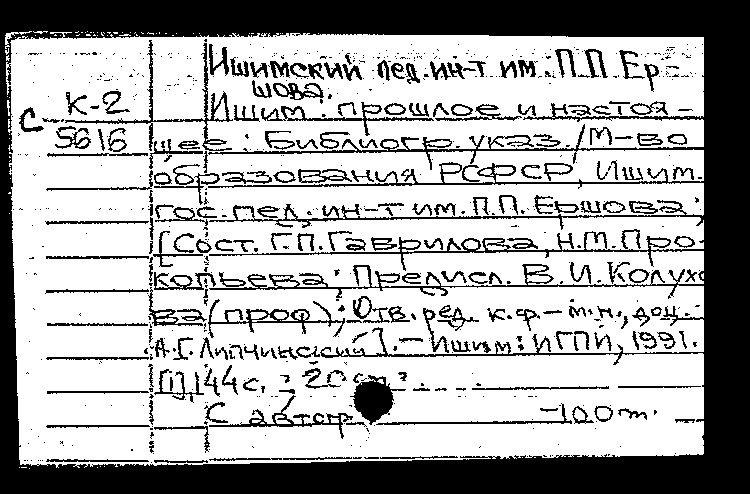 Ишимский пед.ин-т им. П.П. Ер-
шова.
К-2
Ишим : прошлое и настоя-
С
5616
щее : Библиогр. указ. / М-во
образования РСФСР, Ишим.
гос. пед. ин-т им. П.П. Ершова;
[Сост. Г.П. Гаврилова, Н.М. Про-
копьева; Предисл. В.И. Колухо
ва (проф); Отв. ред. к.ф.-м.н., доц.
А.Г. Липчинский]. — Ишим : ИГПИ, 1991.
[1], 144 с. ; 20 см.
С автогр. -100 т.